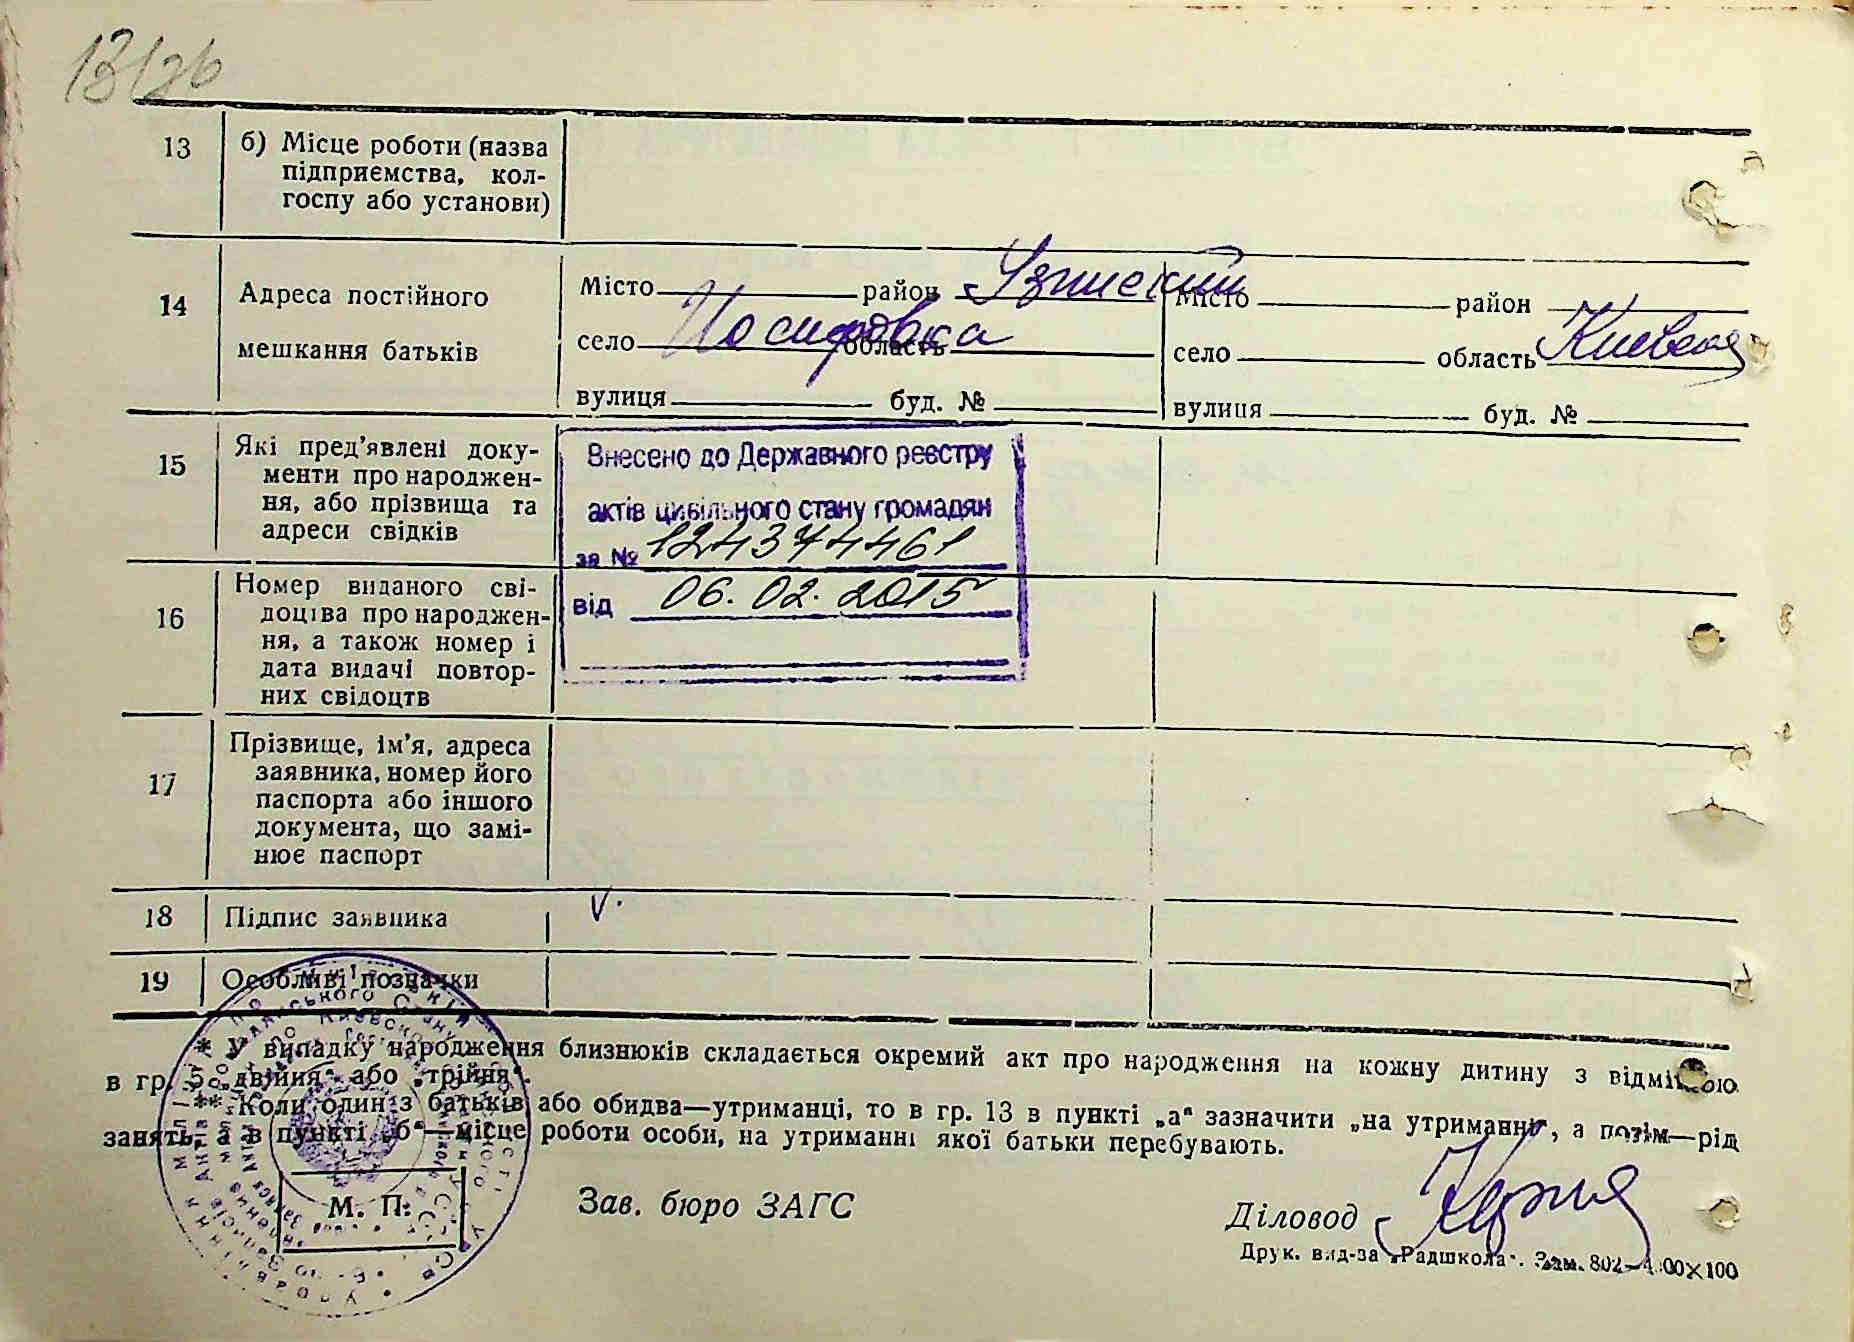 13/26
13 б) Місце роботи (назва
підприємства, кол-
госпу або установи)
14 Адреса постійного
мешкання батьків
Місто район Узинский
село Иосиповка область
вулиця буд. №
Місто район
село область Киевская
вулиця буд. №
15 Які пред'явлені доку-
менти про народжен-
ня, або прізвища та
адреси свідків
Внесено до Державного реєстру
актів цивільного стану громадян
за № 124374461
від 06.02.2015
16 Номер виданого сві-
доцтва про народжен-
ня, а також номер і
дата видачі повтор-
них свідоцтв
17 Прізвище, ім'я, адреса
заявника, номер його
паспорта або іншого
документа, що замі-
нює паспорт
18 Підпис заявника
V.
19 Особливі позначки
* У випадку народження близнюків складається окремий акт про народження на кожну дитину з відміткою
в гр. 5 „двійня“ або „трійня“.
** Коли один з батьків або обидва—утриманці, то в гр. 13 в пункті „а“ зазначити „на утриманні“, а потім—рід
занять, а в пункті „б“—місце роботи особи, на утриманні якої батьки перебувають.
М. П.
Зав. бюро ЗАГС
Діловод
Друк. вид-за „Радшкола“. Зам. 802—